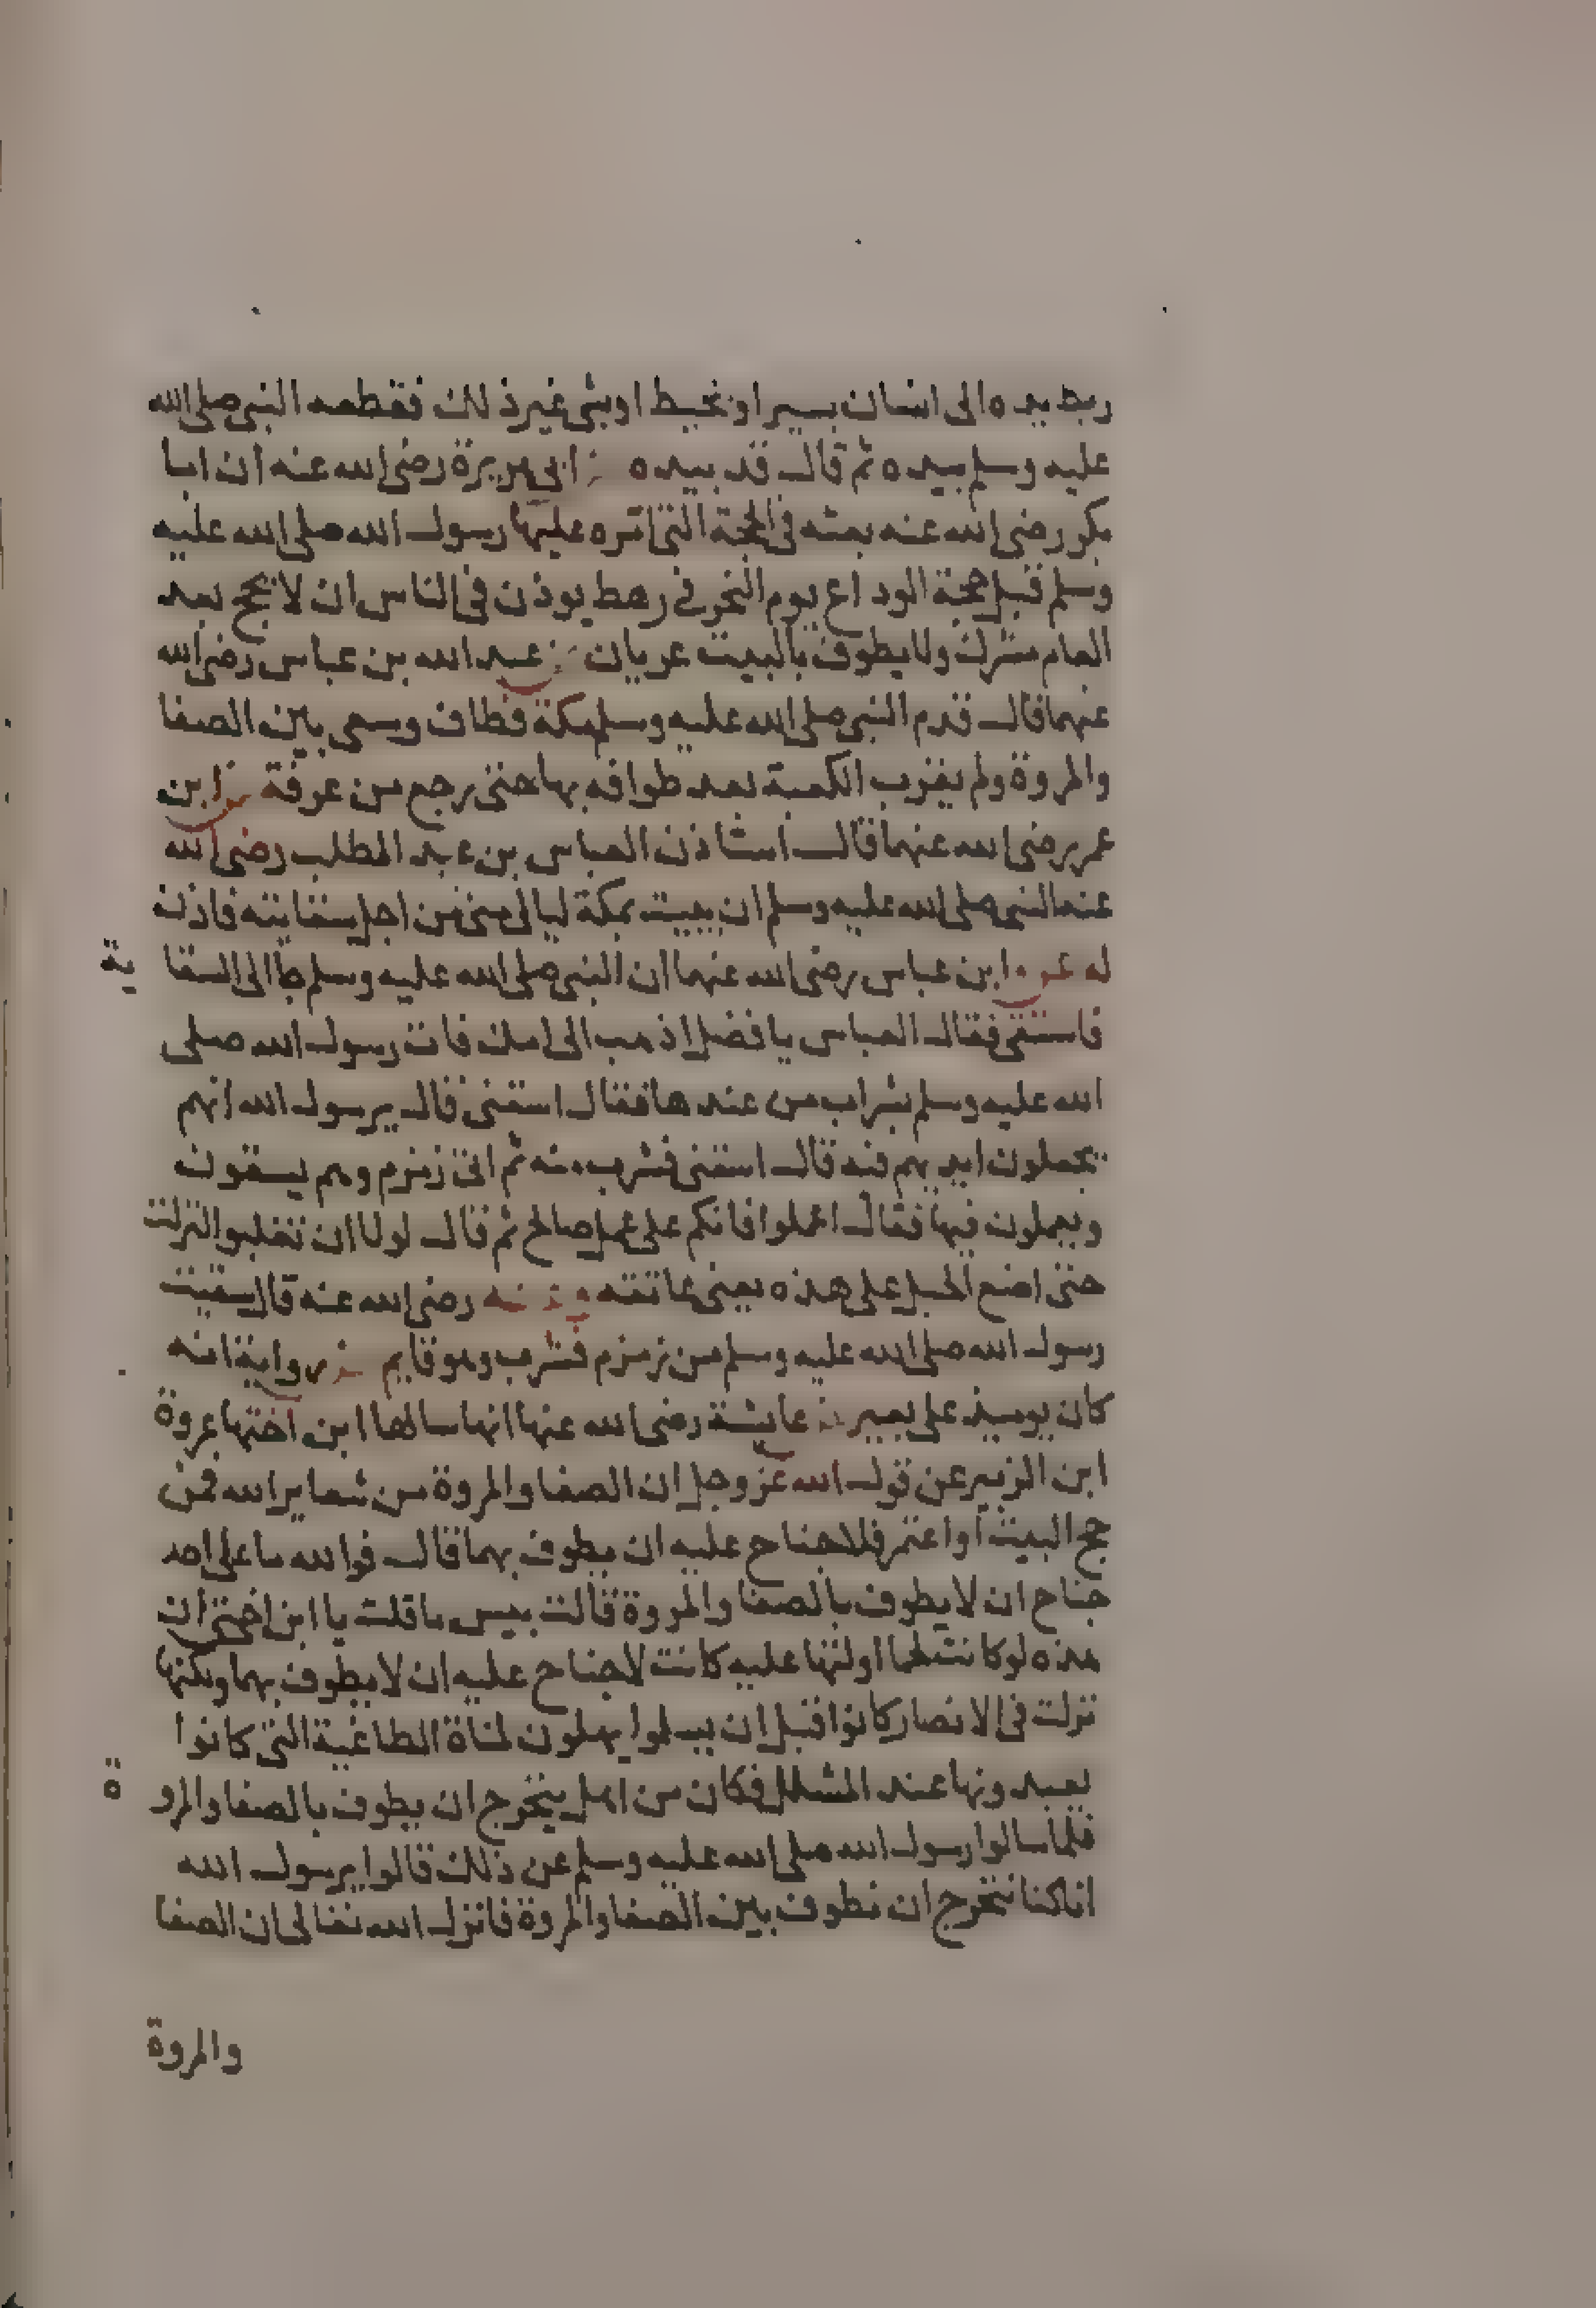 ربط يده الى انسان بسير او بخيط او بشي غير ذلك فقطعه النبي صلى الله
عليه وسلم بيده ثم قال قد بيده عن ابي هريرة رضي الله عنه ان ابا
بكر رضي الله عنه بعثه في الحجة التي امره عليها رسول الله صلى الله عليه
وسلم قبل حجة الوداع يوم النحر في رهط يوذن في الناس ان لا يحج بعد
العام مشرك ولا يطوف بالبيت عريان عن عبد الله بن عباس رضي الله
عنهما قال قدم النبي صلى الله عليه وسلم مكة فطاف وسعى بين الصفا
والمروة ولم يقرب الكعبة بعد طوافه بها حتى رجع من عرفة عن ابن
عمر رضي الله عنهما قال استاذن العباس بن عبد المطلب رضي الله
عنه النبي صلى الله عليه وسلم ان يبيت بمكة ليالي منى من اجل سقايته فاذن
له عن ابن عباس رضي الله عنهما ان النبي صلى الله عليه وسلم جا الى السقا
ية
فاستقى فقال العباس يا فضل اذهب الى امك فات رسول الله صلى
الله عليه وسلم بشراب من عندها فقال اسقني قال يرسول الله انهم
يجعلون ايديهم فيه قال اسقني فشرب منه ثم اتى زمزم وهم يسقون
ويعملون فيها فقال اعملوا فانكم على عمل صالح ثم قال لولا ان تغلبوا لنزلت
حتى اضع الحبل على هذه يعني عاتقه وعنه رضي الله عنه قال سقيت
رسول الله صلى الله عليه وسلم من زمزم فشرب وهو قايم وفي رواية انه
كان يوميذ على بعير عن عايشة رضي الله عنها انها سالها ابن اختها عروة
ابن الزبير عن قول الله عز وجل ان الصفا والمروة من شعاير الله فمن
حج البيت او اعتمر فلا جناح عليه ان يطوف بهما قال فوالله ما على احد
جناح ان لا يطوف بالصفا والمروة قالت بيس ما قلت يا ابن اختي ان
هذه لو كانت كما اولتها عليه كانت لا جناح عليه ان لا يطوف بهما ولكنها
نزلت في الانصار كانوا قبل ان يسلموا يهلون لمناة الطاغية التي كانوا
يعبدونها عند المشلل فكان من اهل يتحرج ان يطوف بالصفا والمرو
ة
فلما سالوا رسول الله صلى الله عليه وسلم عن ذلك قالوا يرسول الله
انا كنا نتحرج ان نطوف بين الصفا والمروة فانزل الله تعالى ان الصفا
والمروة